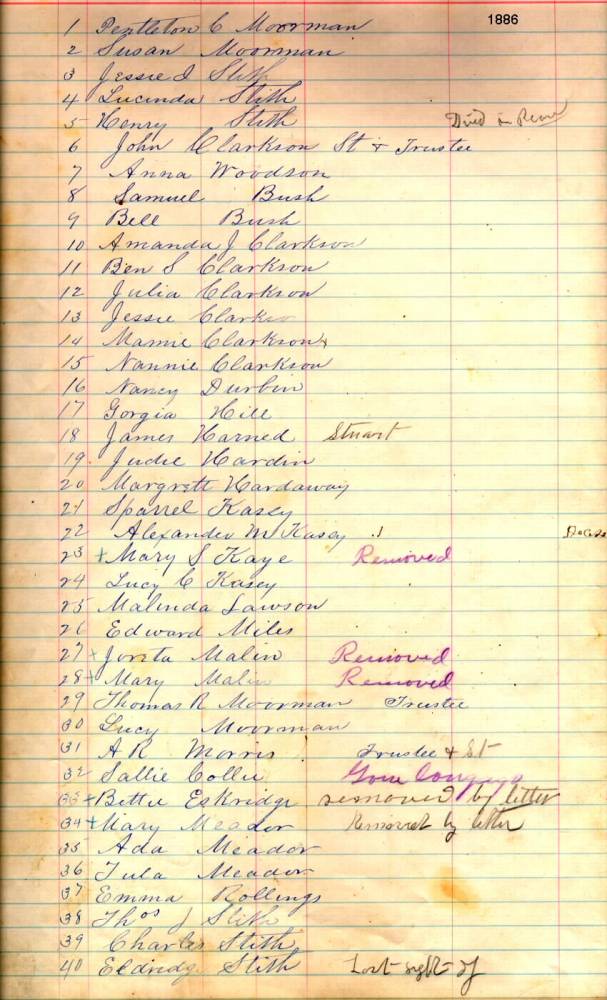 1886
1 Pentleton C Moorman
2 Susan Moorman
3 Jessie I Stith
4 Lucinda Stith
5 Henry Stith Died in
6 John Clarkson St & Trustee
7 Anna Woodson
8 Samuel Bush
9 Bell Bush
10 Amanda J Clarkson
11 Ben S Clarkson
12 Julia Clarkson
13 Jessie Clarkson
14 Mamie Clarkson
15 Nannie Clarkson
16 Nancy Durbin
17 Gorgia Hill
18 James Harned Stuart
19 Judie Hardin
20 Margrett Hardaway
21 Sparrel Kasey
22 Alexander M Kasey
23 + Mary S Kaye Removed
24 Lucy C Kasey
25 Malinda Lawson
26 Edward Miles
27 + Malin Removed
28 + Mary Malin Removed
29 Thomas R Moorman Trustee
30 Lucy Moorman
31 A R Morris Trustee & St
32 Sallie Collie Gone
33 + Bettie Eskridge removed by letter
34 + Mary Meador Removed by letter
35 Ada Meador
36 Tula Meador
37 Emma Rollings
38 Thos J Stith
39 Charles Stith
40 Eldridg Stith Lost sight of